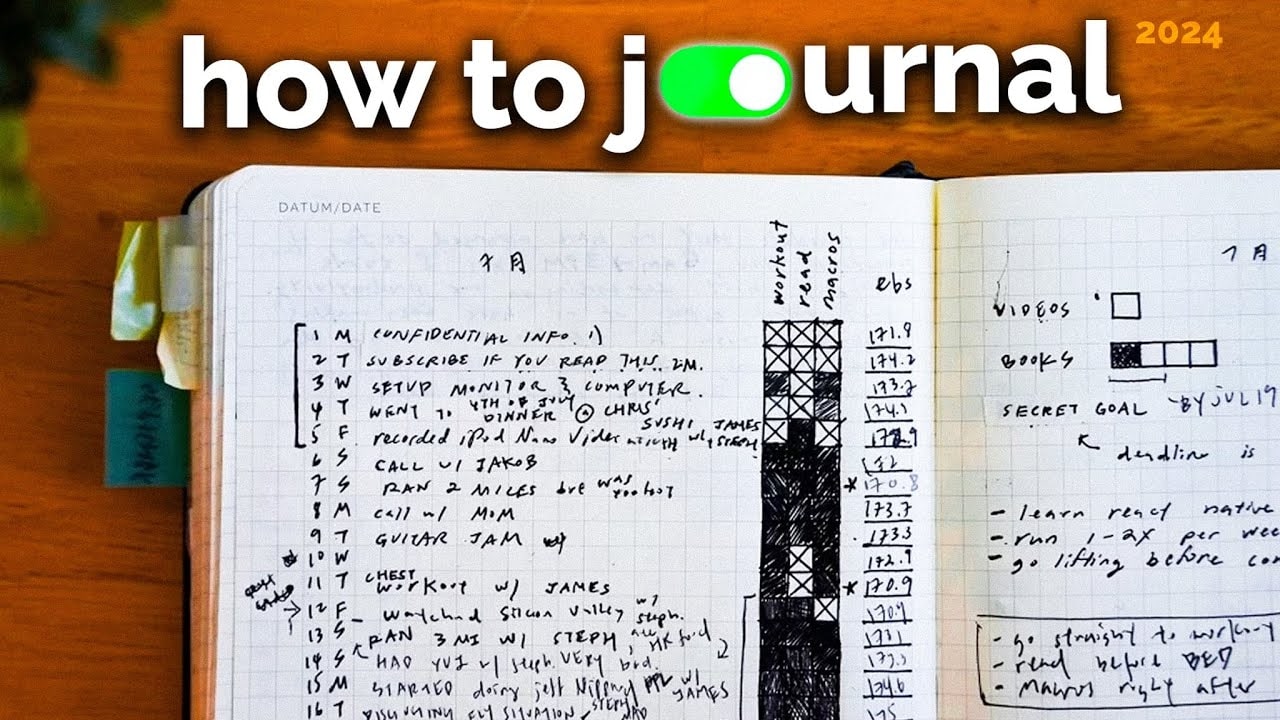 how to journal 2024
DATUM/DATE
7月
workout
read
macros
lbs
1 M CONFIDENTIAL INFO. :)
171.9
2 T SUBSCRIBE IF YOU READ THIS.
174.2
3 W SETUP MONITOR & COMPUTER.
173.2
4 T WENT TO 4TH OF JULY DINNER @ CHRIS'
174.1
5 F recorded iPod Nano Video SUSHI w/ JAMES STEPH
6 S CALL w/ JAKOB
7 S RAN 2 MILES WAS too hot
*170.8
8 M call w/ MOM
173.7
9 T GUITAR JAM
173.3
10 W
172.9
11 T CHEST workout w/ JAMES
*170.9
12 F watched Silicon Valley w/ steph.
13 S RAN 3 MI w/ STEPH
173.1
14 S HAD w/ steph. VERY bad.
173.3
15 M STARTED doing w/ JAMES
174.6
16 T SITUATION
175
7月
VIDEOS
BOOKS
SECRET GOAL - BY JUL 19
deadline is
- learn react native
- run 1-2x per wee
- go lifting before
- go straight to workout
- read before BED
- macros right after